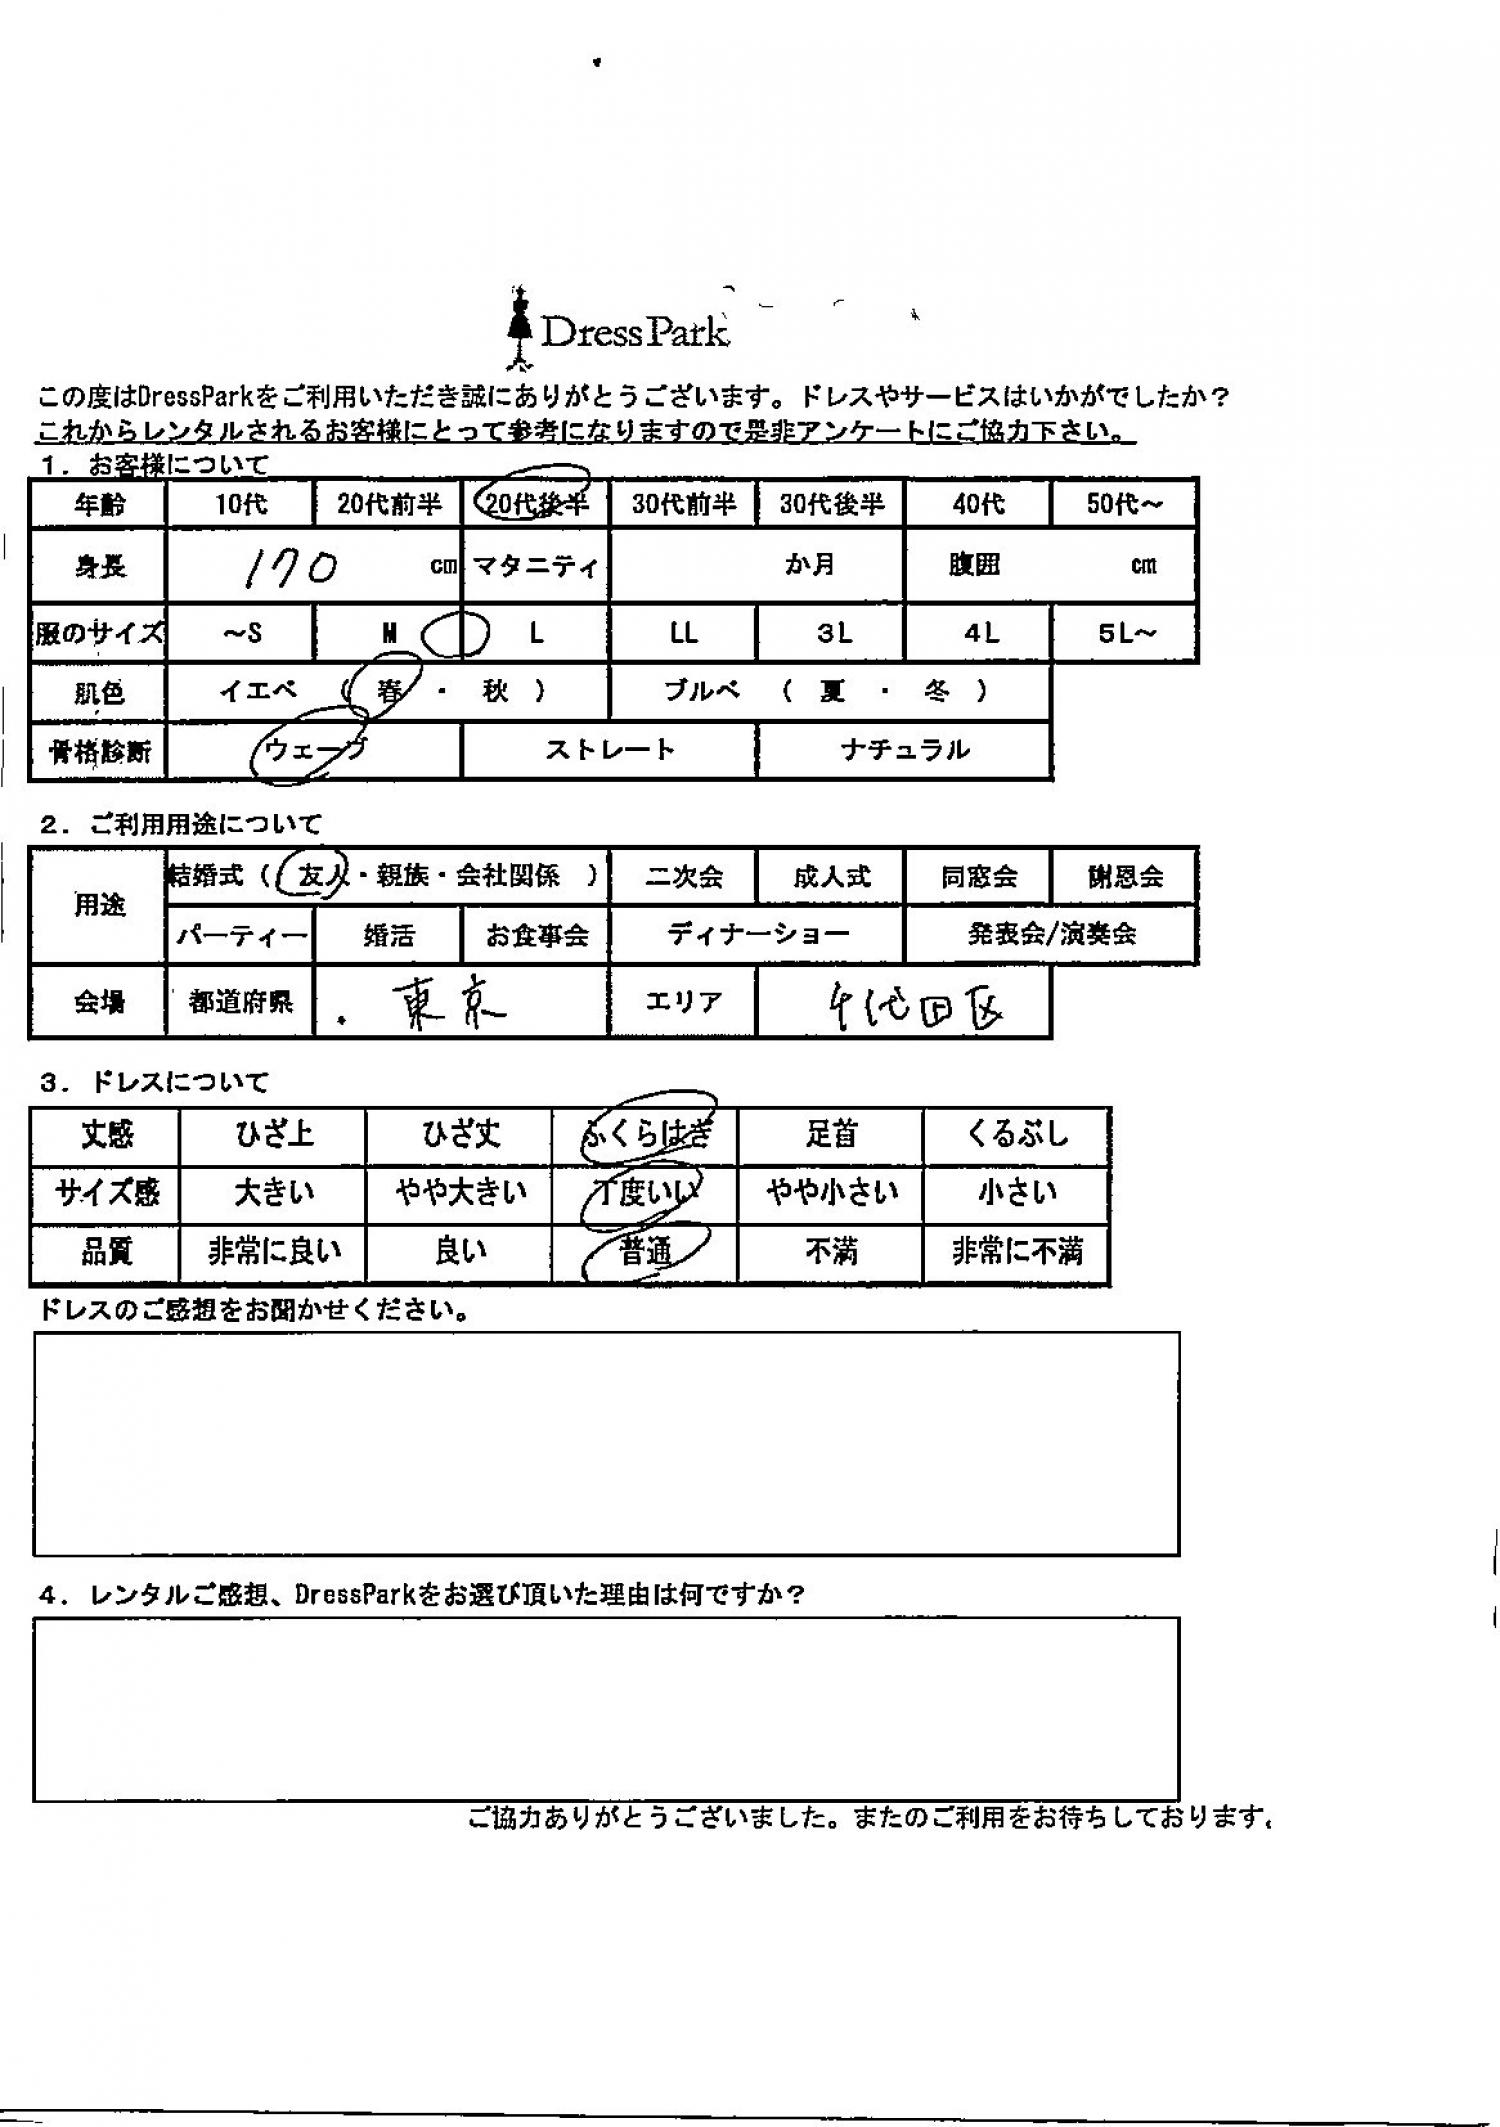 DressPark
この度はDressParkをご利用いただき誠にありがとうございます。ドレスやサービスはいかがでしたか?
これからレンタルされるお客様にとって参考になりますので是非アンケートにご協力下さい。
1. お客様について
年齢 10代 20代前半 20代後半 30代前半 30代後半 40代 50代~
身長 170 cm マタニティ か月 腹囲 cm
服のサイズ ~S M L LL 3L 4L 5L~
肌色 イエベ ( 春 ・ 秋 ) ブルベ ( 夏 ・ 冬 )
骨格診断 ウェーブ ストレート ナチュラル
2. ご利用用途について
用途 結婚式 ( 友人・親族・会社関係 ) 二次会 成人式 同窓会 謝恩会
パーティー 婚活 お食事会 ディナーショー 発表会/演奏会
会場 都道府県 東京 エリア 千代田区
3. ドレスについて
丈感 ひざ上 ひざ丈 ふくらはぎ 足首 くるぶし
サイズ感 大きい やや大きい 丁度いい やや小さい 小さい
品質 非常に良い 良い 普通 不満 非常に不満
ドレスのご感想をお聞かせください。
4. レンタルご感想、DressParkをお選び頂いた理由は何ですか?
ご協力ありがとうございました。またのご利用をお待ちしております。